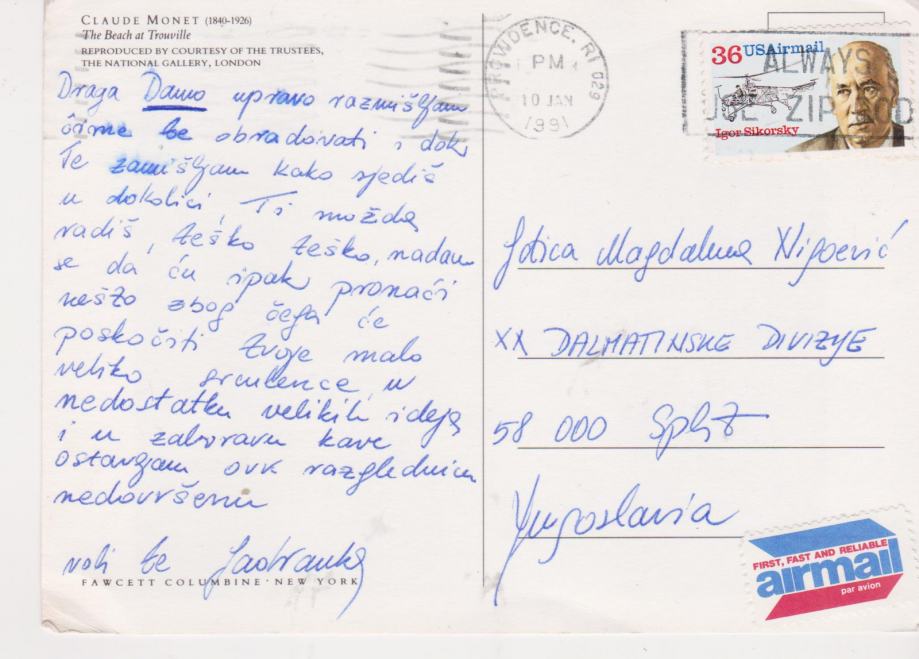 CLAUDE MONET (1840-1926)
The Beach at Trouville
REPRODUCED BY COURTESY OF THE TRUSTEES,
THE NATIONAL GALLERY, LONDON
Draga Damo upravo razmišljam
čime te obradovati i dok
Te zamišljam kako sjediš
u dokolici, Ti možda
radiš, teško teško, nadam
se da ću ipak pronaći
nešto zbog čega će
poskočiti Tvoje malo
veliko srculence, u
nedostatku velikih ideja
i u zaboravu kave
ostavljam ovu razglednicu
nedovršenu
voli te Jadranka
FAWCETT COLUMBINE · NEW YORK
PROVIDENCE, RI 029
PM
10 JAN
1991
ALWAYS
USE ZIP
36 USAirmail
Igor Sikorsky
Magdalena
XX DALMATINSKE DIVIZIJE
58 000 Split
Yugoslavia
FIRST, FAST AND RELIABLE
airmail
par avion